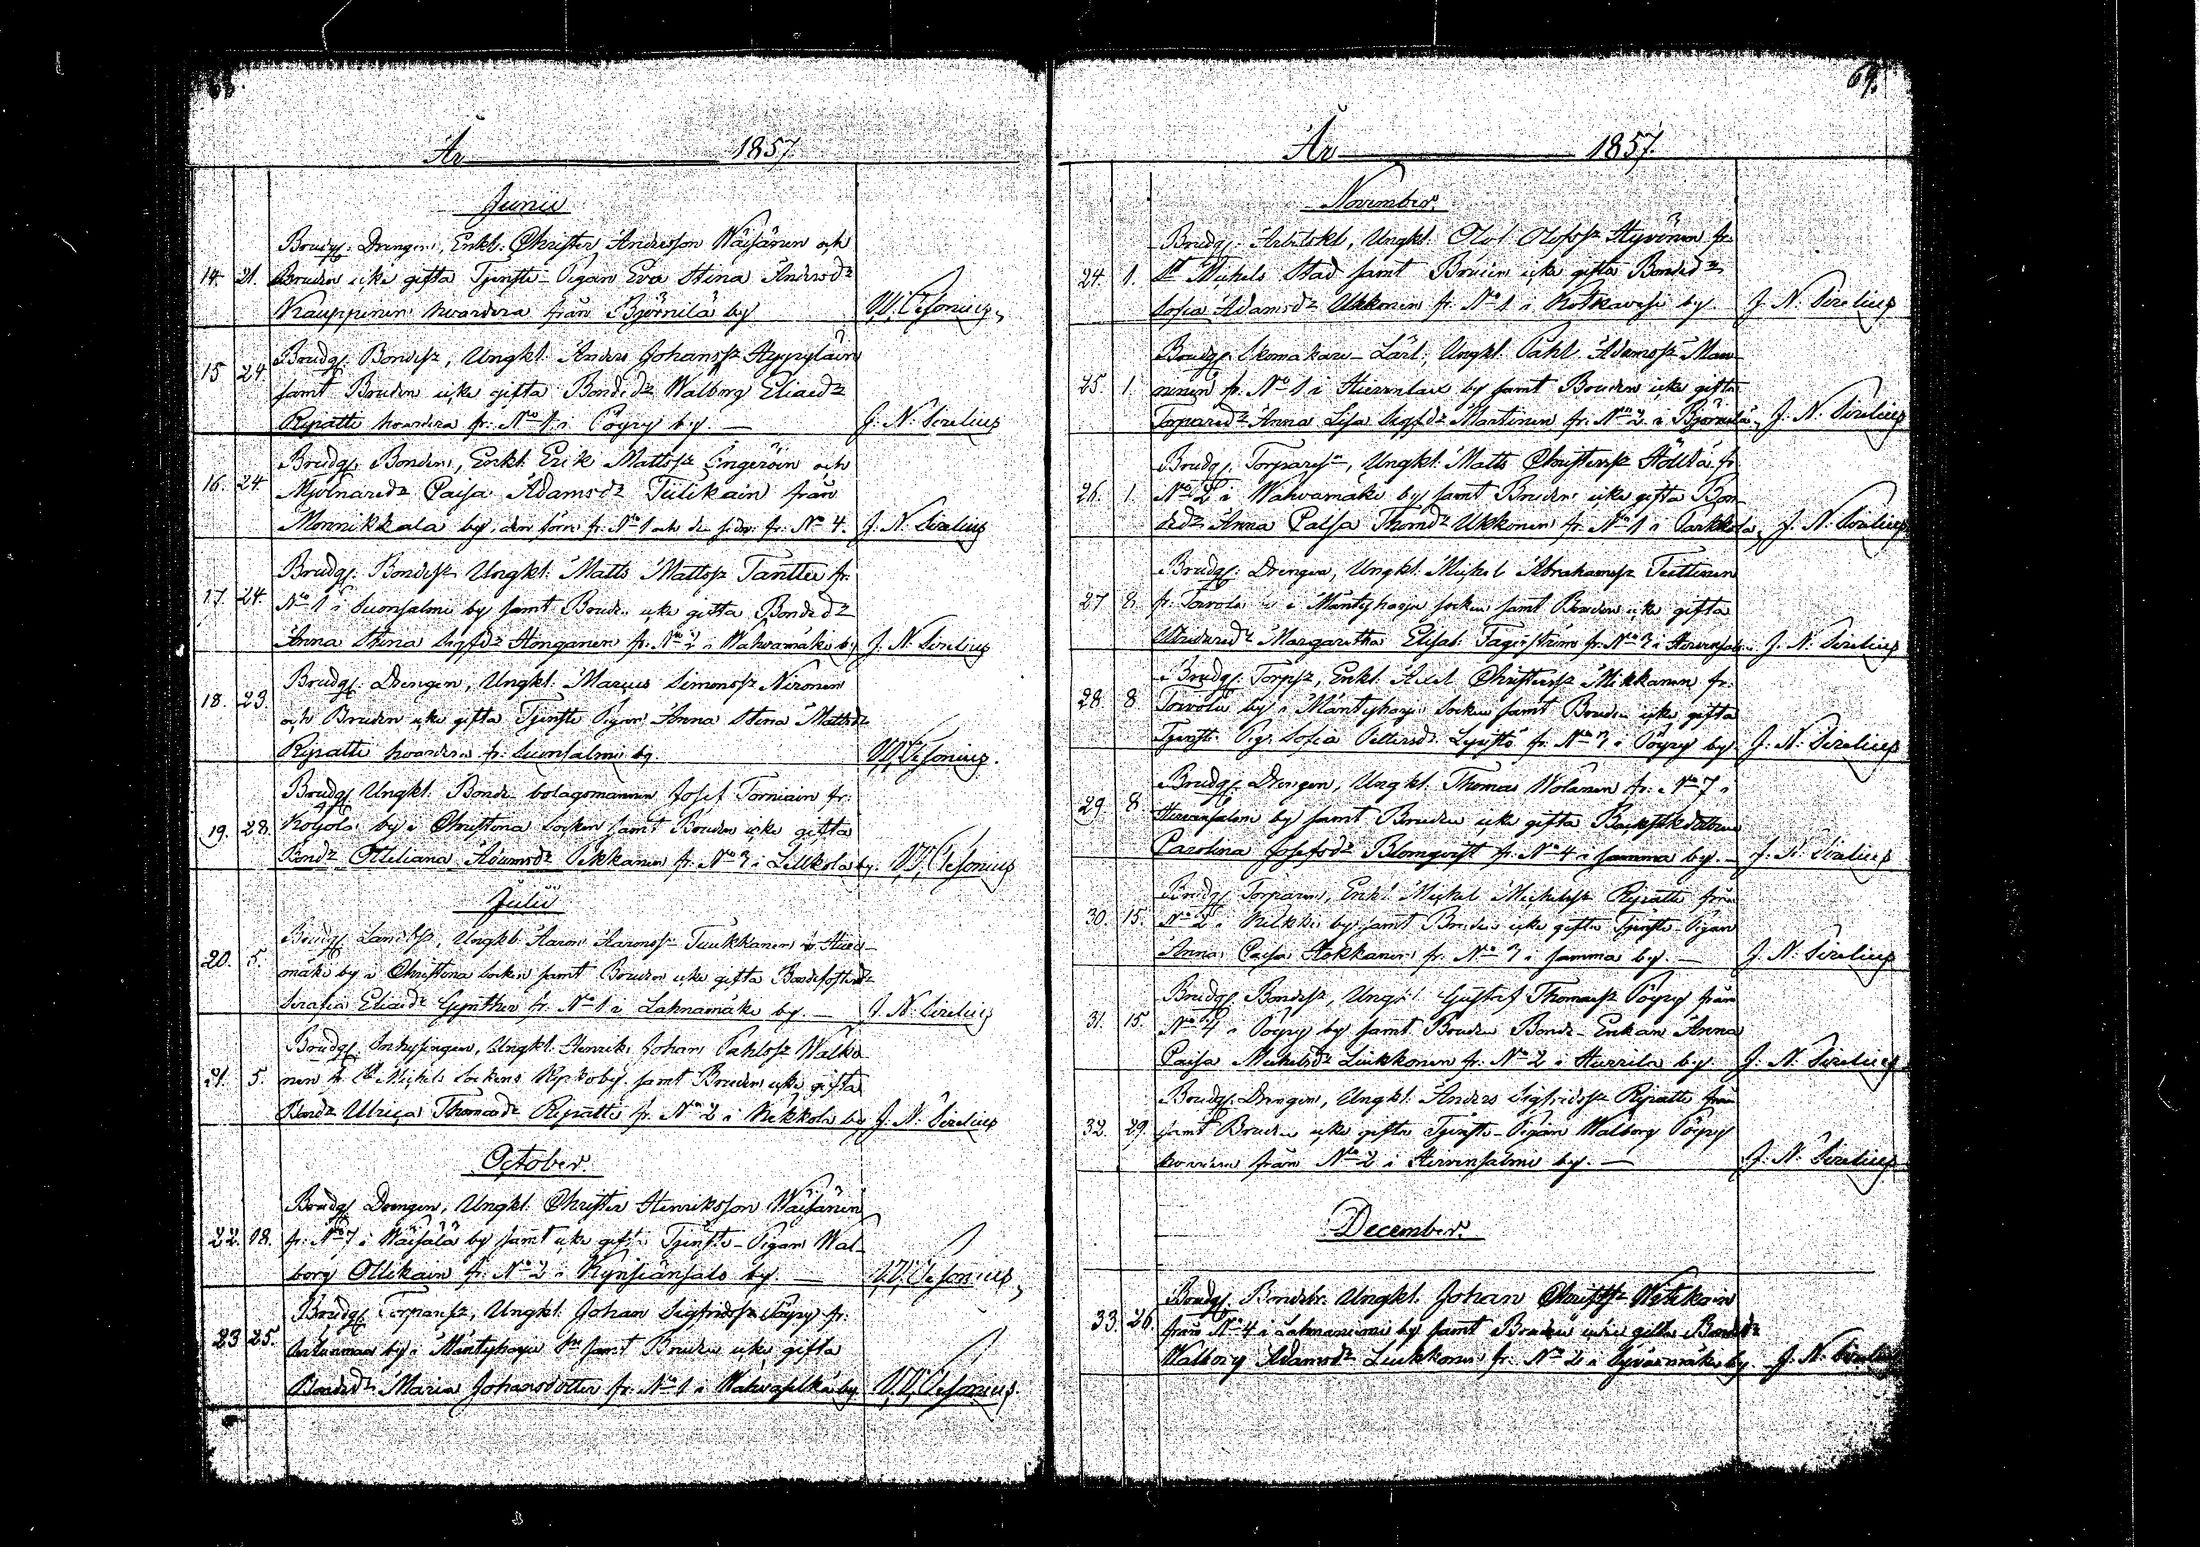 68.
År 1857.
Junii
14. 21. Brudg. Drengen, Enkl. Christer Andersson Wäisänen och
Bruden icke gifta Tjenste-Pigan Eva Stina Andersdr
Kauppinen hvardera från Björnilä by
15 24. Brudg. Bondess, Ungkl. Anders Johanssr Hyyryläin
samt Bruden icke gifta Bondedr Walborg Eliaedr
Ripatti hvardera fr. No 1 i Pöyry by. J. N. Sirelius
16. 24. Brudg. Bonden, Enkl. Erik Mattssr Ingeröin och
Mjölnaredr Caisa Adamsdr Tiilikain från
Monnikkala by, den förre fr. No 1 och den sedn. fr. No 4. J. N. Sirelius
17. 24. Brudg. Bondess Ungkl. Matts Mattssr Tanttu fr.
No 1 i Suonsalmi by samt Brud. icke gifta Bondedr
Anna Stina Sigfdr Honganen fr. No 2 i Wahvamäki by J. N. Sirelius
18. 23. Brudg. Drengen, Ungkl. Marcus Simonssr Nironen
och Bruden icke gifta Tjenste Pigan Anna Stina Mattsdr
Ripatti hvardera fr. Suonsalmi by.
19. 28. Brudg. Ungkl. Bonde bolagsmannen Josef Torniain fr.
by i Christina Socken samt Bruden icke gifta
Bondr Otteliana Adamsdr Pekkanen fr. No 3 i Liukkola by.
Julii
20. 5. Brudg. Ungkl. Aaron Aaronssr Tuukkanen
mäki by i Christina Socken samt Bruden icke gifta
Serafia Eliaedr Gynther fr. No 1 i Lahnamäki by. J. N. Sirelius
21. 5. Brudg. Inhysingen, Ungkl. Henrik Johan Pahlssr
nen fr. St Michels Sockens Kyrkoby samt Bruden icke gifta
Bondr Ulrica Thomasdr Ripatti fr. No 2 i Kekkola by J. N. Sirelius
October.
22. 18. Brudg. Drengen, Ungkl. Christer Henriksson Wäisänen
fr. No 7 i Wäisälä by samt icke gifta Tjenste-Pigan Wal-
borg Ollikain fr. No 2 i Kynsiänsalo by.
23 25. Brudg. Torparess, Ungkl. Johan Sigfridssr Pöyry fr.
by i Mäntyharju Sn samt Bruden icke gifta
Bondedr Maria Johansdotter fr. No 1 i Wahvaselkä by
69.
År 1857.
November.
24. 1. Brudg. Arbetskl, Ungkl. Olof Olofssr Hyvönen fr.
St Michels Stad samt Bruden icke gifta Bondedr
Sofia Adamsdr Ukkonen fr. No 1 i Kotkavesi by. J. N. Sirelius
25. 1. Brudg. Skomakare-Lärl, Ungkl. Pahl Adamssr Man-
ninen fr. No 1 i by samt Bruden icke gifta
Torparedr Anna Lisa Sigfdr Martinen fr. No 2 i Björnilä. J. N. Sirelius
26. 1. Brudg. Torparess, Ungkl. Matts Christerssr Hölttä fr.
No 2 i Wahvamäki by samt Bruden icke gifta Bon-
dedr Anna Caisa Thomdr Ukkonen fr. No 1 i Parkkola, J. N. Sirelius
27 8. Brudg. Drengen, Ungkl. Michel Abrahamssr Teittinen
fr. i Mäntyharju socken samt Bruden icke gifta
Margaretha Elisab. Fagerström fr. No 3 i Hirvensalmi. J. N. Sirelius
28 8. Brudg. Torpess, Enkl. Axel Christerssr Mikkanen fr.
Toivola by i Mäntyharju Socken samt Bruden icke gifta
Tjenste Pig. Sofia Pettersdr fr. No 3 i Pöyry by J. N. Sirelius
29. 8 Brudg. Drengen, Ungkl. Thomas Wolanen fr. No 7 i
Hirvensalmi by samt Bruden icke gifta
Carolina Josefsdr Blomqvist fr. No 4 i samma by. J. N. Sirelius
30. 15. Brudg. Torparen, Enkl. Michel Michelssr Ripatti från
No 2 i by samt Bruden icke gifta Tjenste-Pigan
Anna Caisa Hokkanen fr. No 3 i samma by. J. N. Sirelius
31. 15. Brudg. Bondess, Ungkl. Gustaf Thomass Pöyry från
No 4 i Pöyry by samt Bruden Bonde-Enkan Anna
Caisa Michelsdr Liukkonen fr. No 2 i Hurrila by. J. N. Sirelius
32. 29. Brudg. Drengen, Ungkl. Anders Sigfridssr Ripatti från
samt Bruden icke gifta Tjenste-Pigan Walborg Pöyry
hvardera från No 2 i Hirvensalmi by. J. N. Sirelius
December.
33. 26. Brudg. Bondebr. Ungkl. Johan Christssr Witikain
från No 4 i Lahnaniemi by samt Bruden icke gifta Bondedr
Walborg Adamsdr Liukkonen fr. No 2 i by. J. N. Sirelius